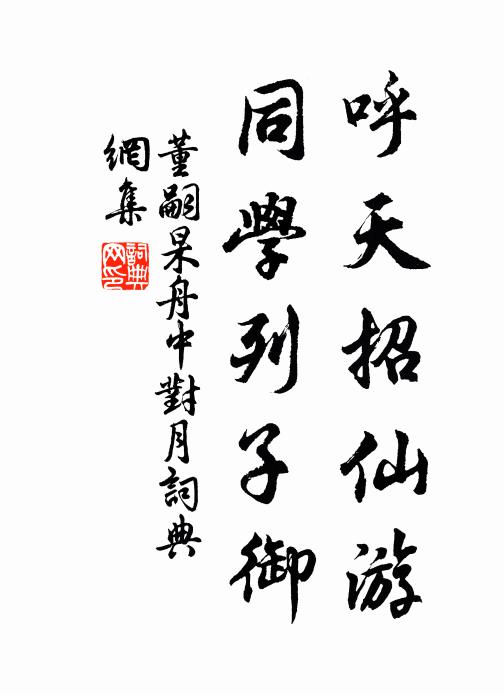 呼天招仙游
同學列子御
董嗣杲舟中對月詞典
網集
詞典
网印